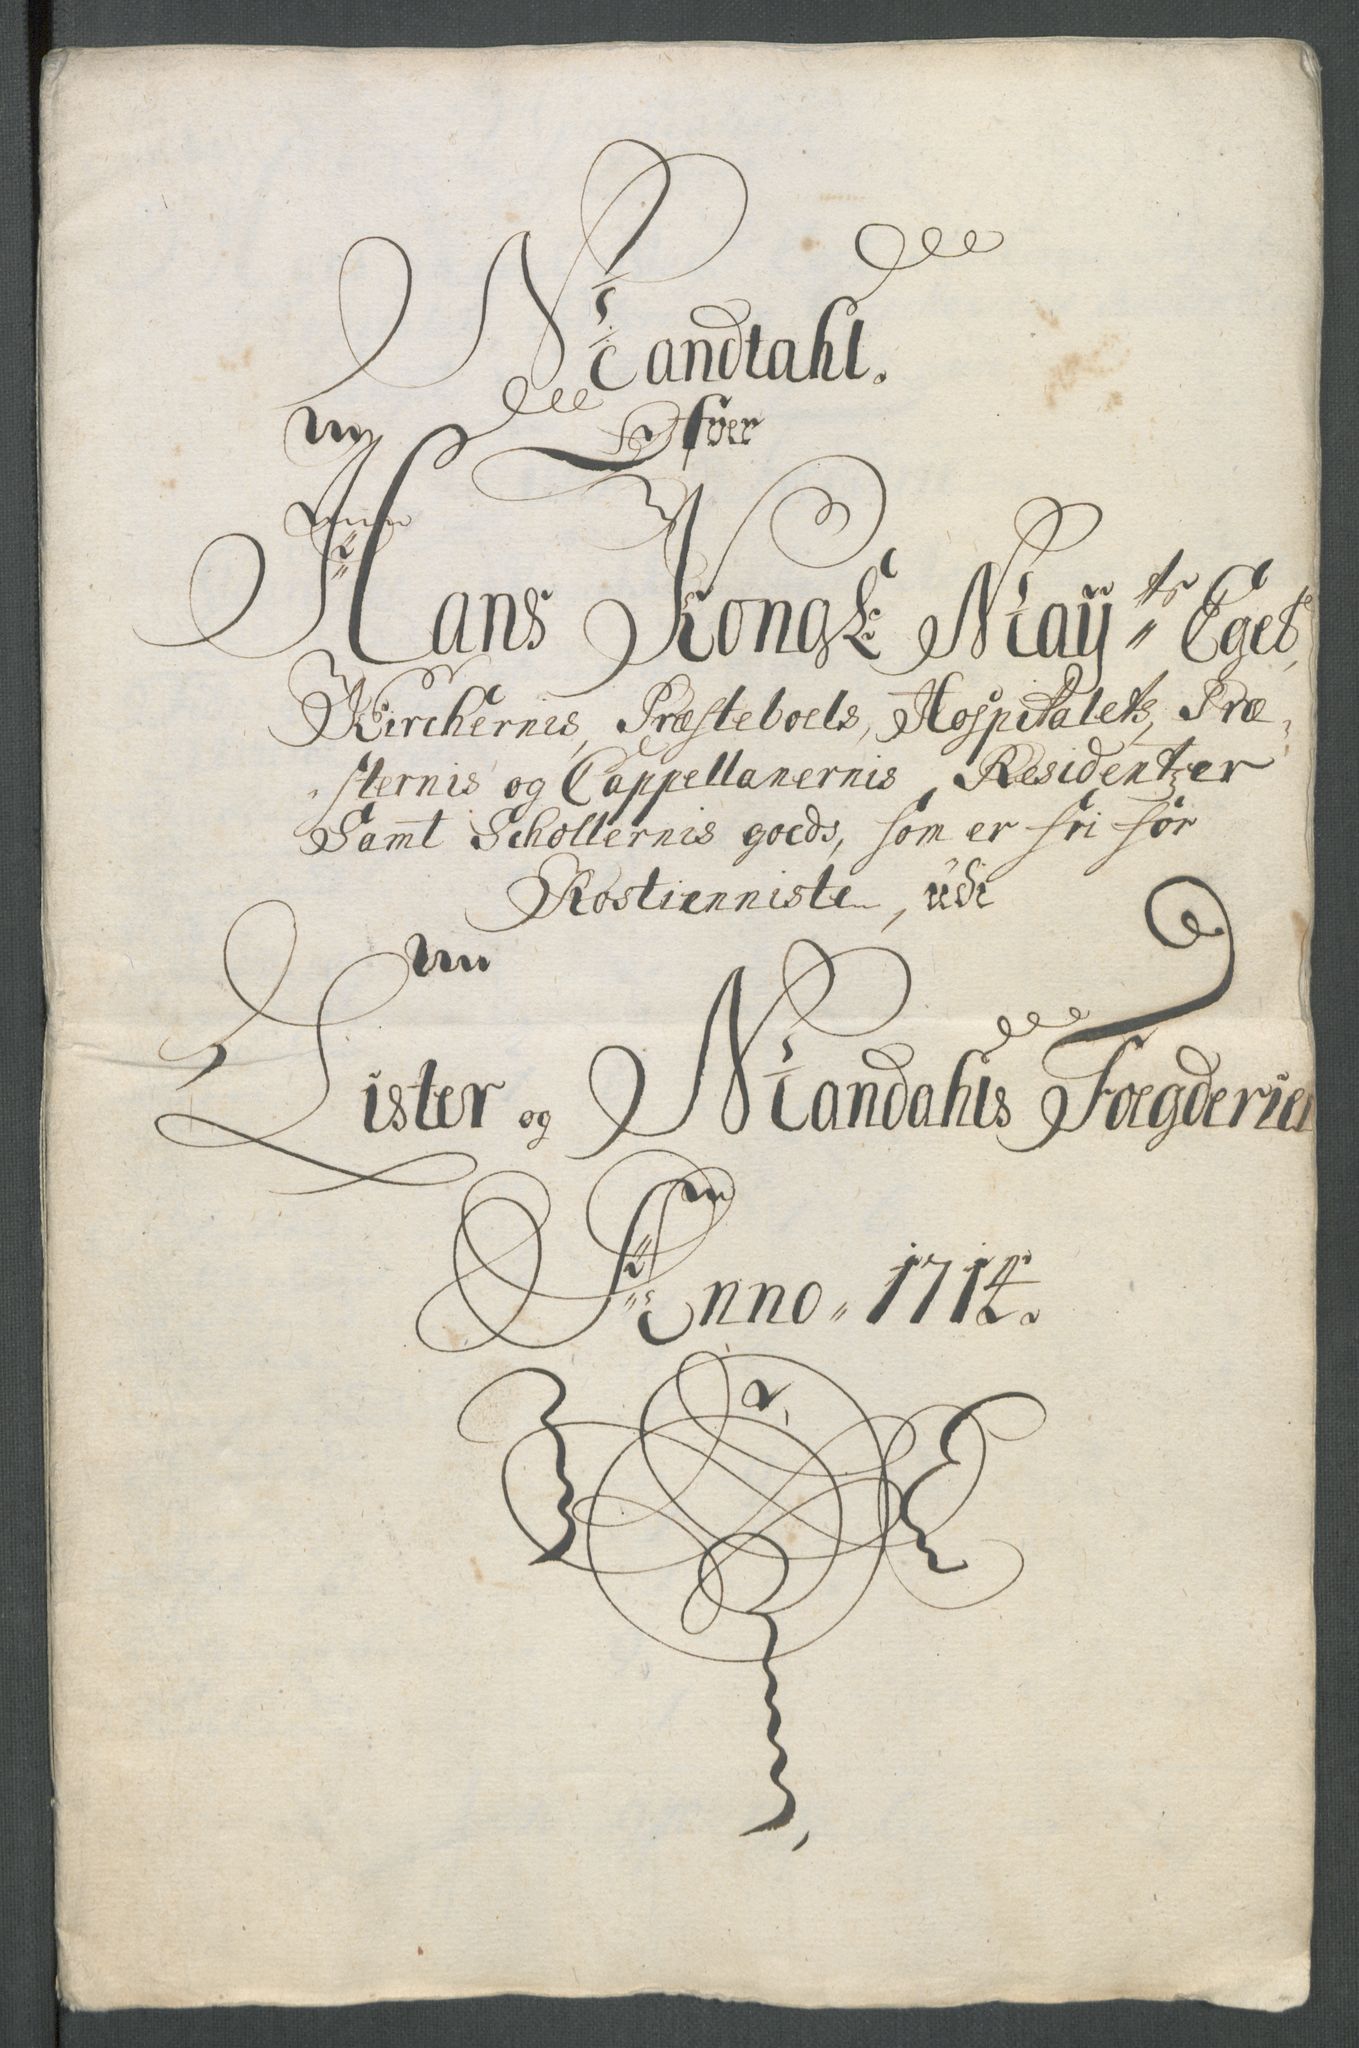 Mandtahl.
Ofver
Hans Kongl: May:ts Eget,
Kirchernis, Præsteboels, Hospitalets, Præ-
sternis og Cappellanernis, Residentzer
Samt Schollernis goeds, som er fri for
Rostienniste, udi
Lister og Mandahls Foegderier
Anno. 1714.